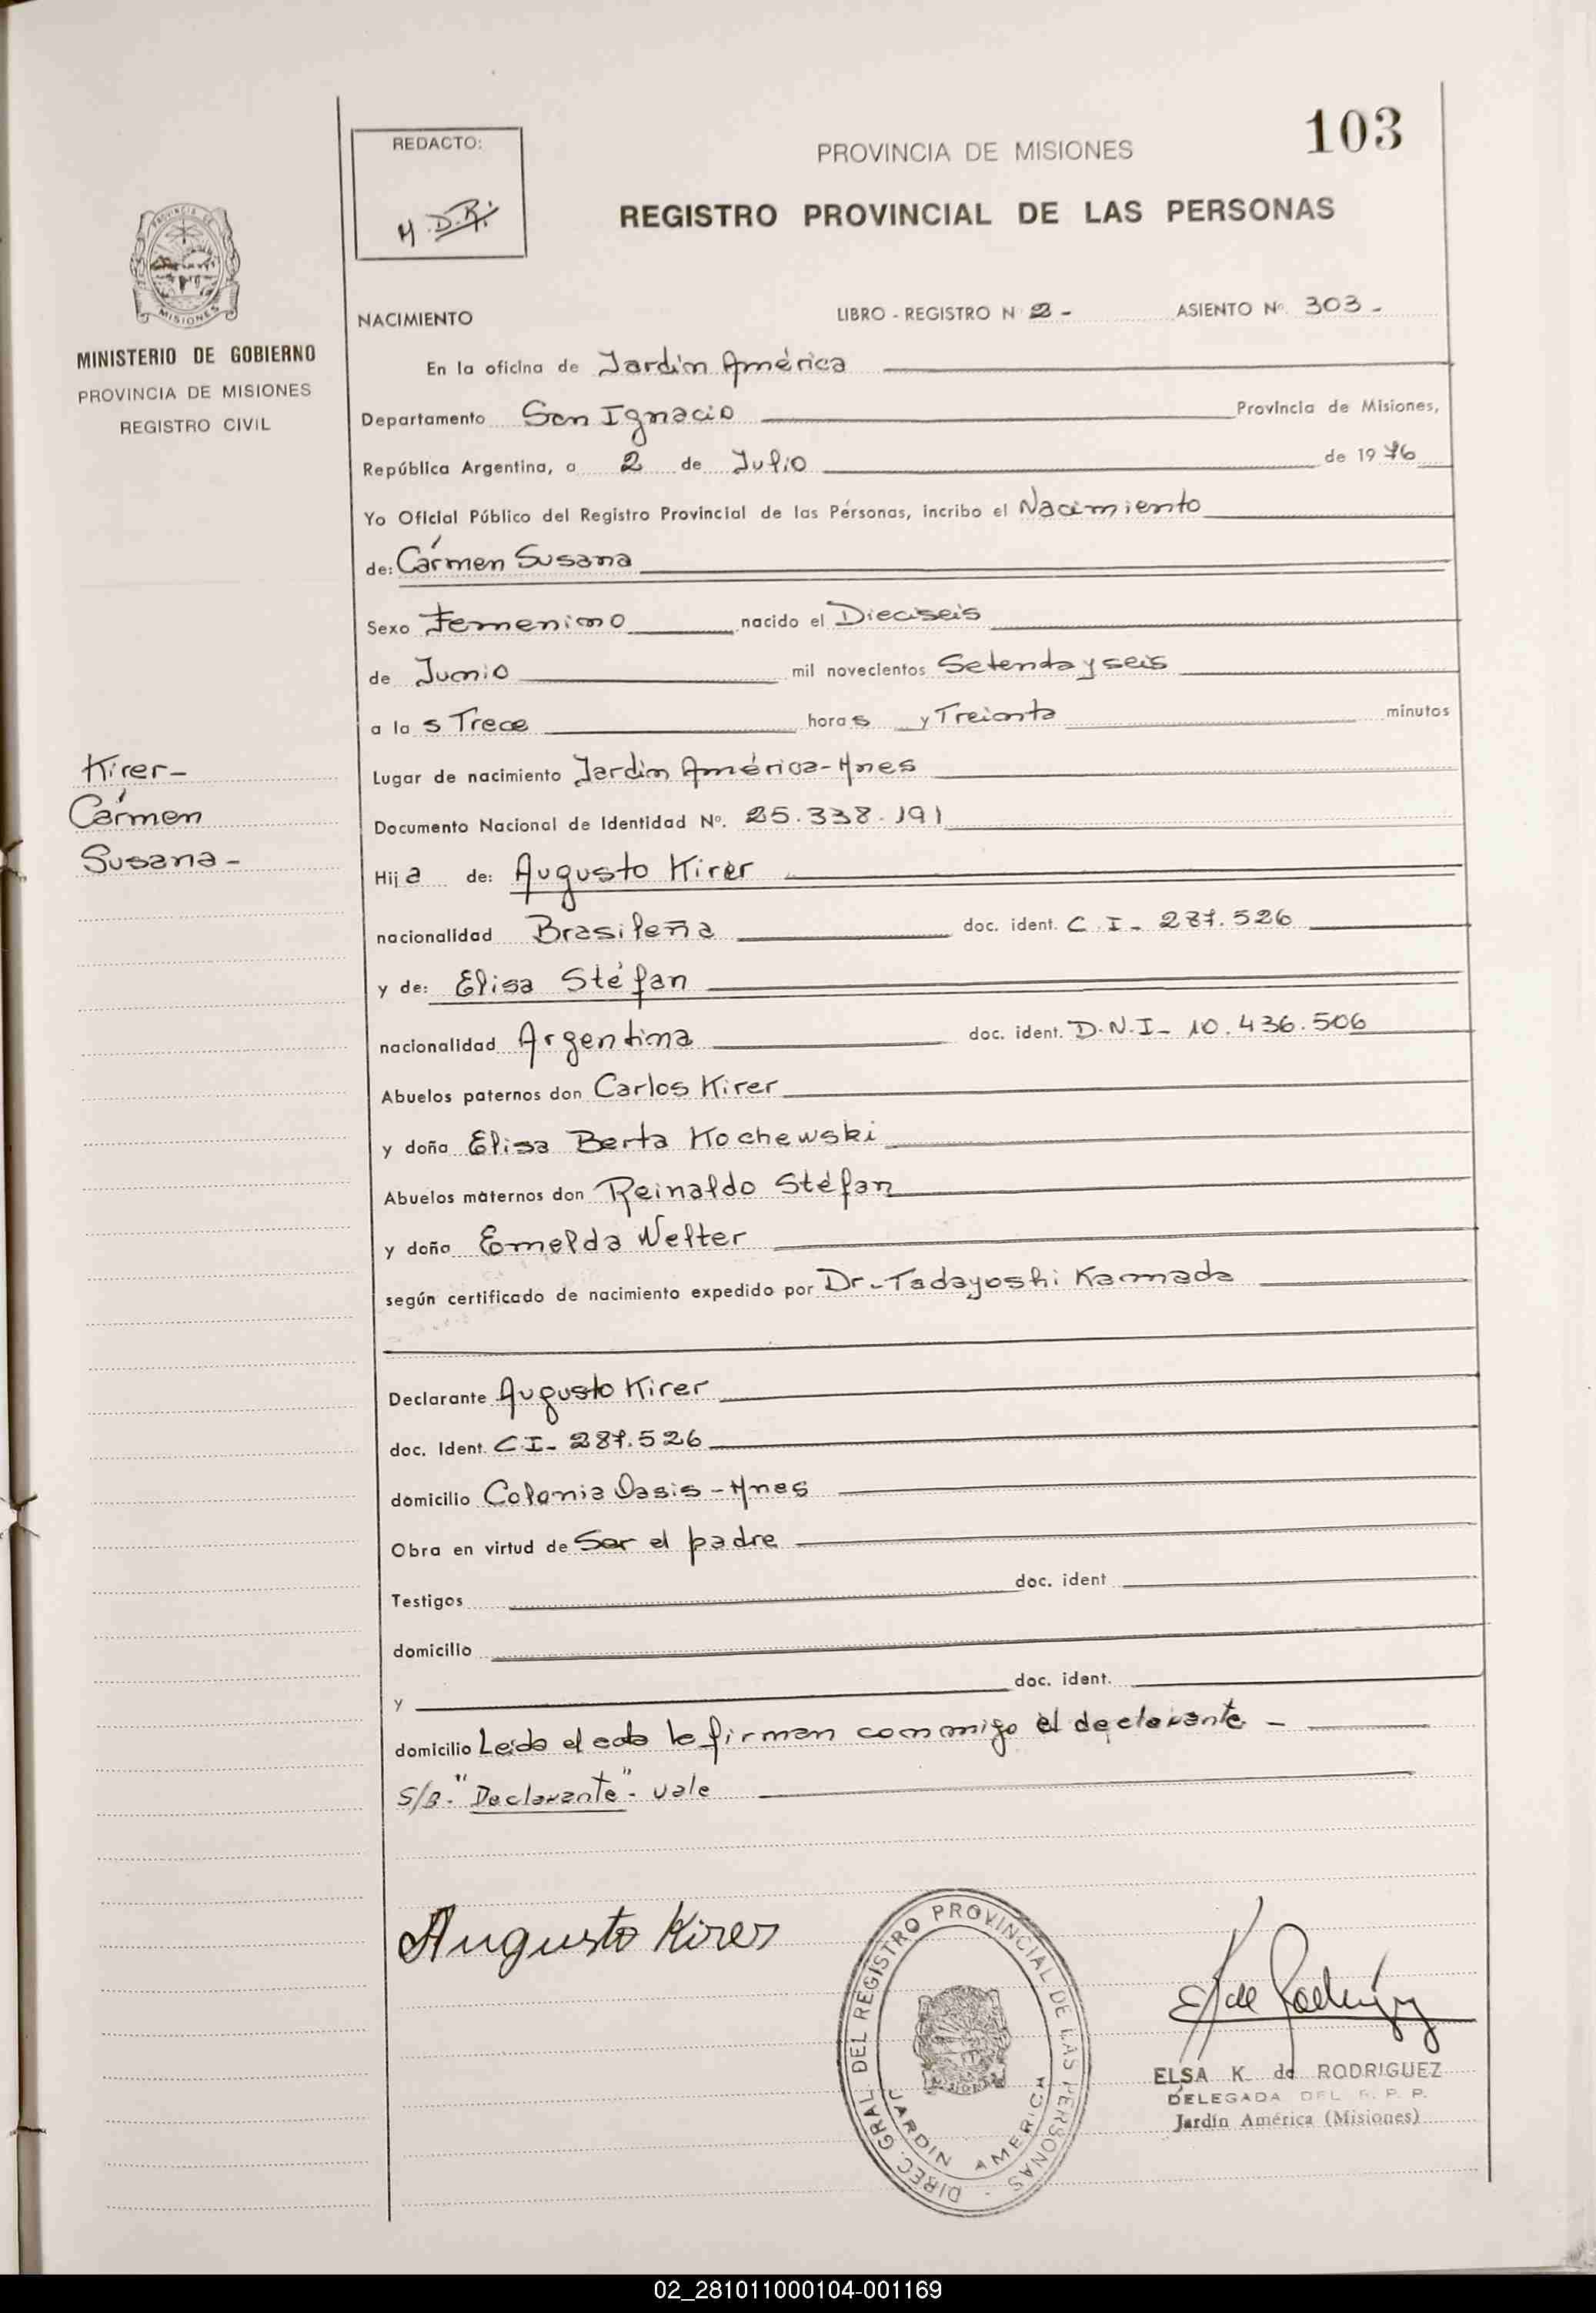 REDACTO:
M.D.R.
PROVINCIA DE MISIONES
103
REGISTRO PROVINCIAL DE LAS PERSONAS
PROVINCIA DE
MISIONES
MINISTERIO DE GOBIERNO
PROVINCIA DE MISIONES
REGISTRO CIVIL
NACIMIENTO LIBRO - REGISTRO N 2 - ASIENTO Nº. 303 -
En la oficina de Jardín América
Departamento San Ignacio Provincia de Misiones,
República Argentina, a 2 de Julio de 1976
Yo Oficial Público del Registro Provincial de las Personas, incribo el Nacimiento
de: Cármen Susana
Sexo Femenino nacido el Dieciseis
de Junio mil novecientos Setenta y seis
a las Trece horas y Treinta minutos
Kirer-
Cármen
Susana-
Lugar de nacimiento Jardín América-Mnes
Documento Nacional de Identidad Nº. 25.338.191
Hija de: Augusto Kirer
nacionalidad Brasileña doc. ident. C.I- 287.526
y de: Elisa Stéfan
nacionalidad Argentina doc. ident. D.N.I- 10.436.506
Abuelos paternos don Carlos Kirer
y doña Elisa Berta Kochewski
Abuelos maternos don Reinaldo Stéfan
y doña Emelda Welter
según certificado de nacimiento expedido por Dr-Tadayoshi Kammada
Declarante Augusto Kirer
doc. Ident. C.I- 287.526
domicilio Colonia Oasis-Mnes
Obra en virtud de Ser el padre
Testigos doc. ident
domicilio
y doc. ident.
domicilio Leída el acta la firman conmigo el declarante -
S/B- "Declarante"- vale
Augusto Kirer
DIREC. GRAL. DEL REGISTRO PROVINCIAL DE LAS PERSONAS -
JARDIN AMERICA
E K de Rodríguez
ELSA K. de RODRIGUEZ
DELEGADA DEL R. P. P.
Jardín América (Misiones)
02_281011000104-001169